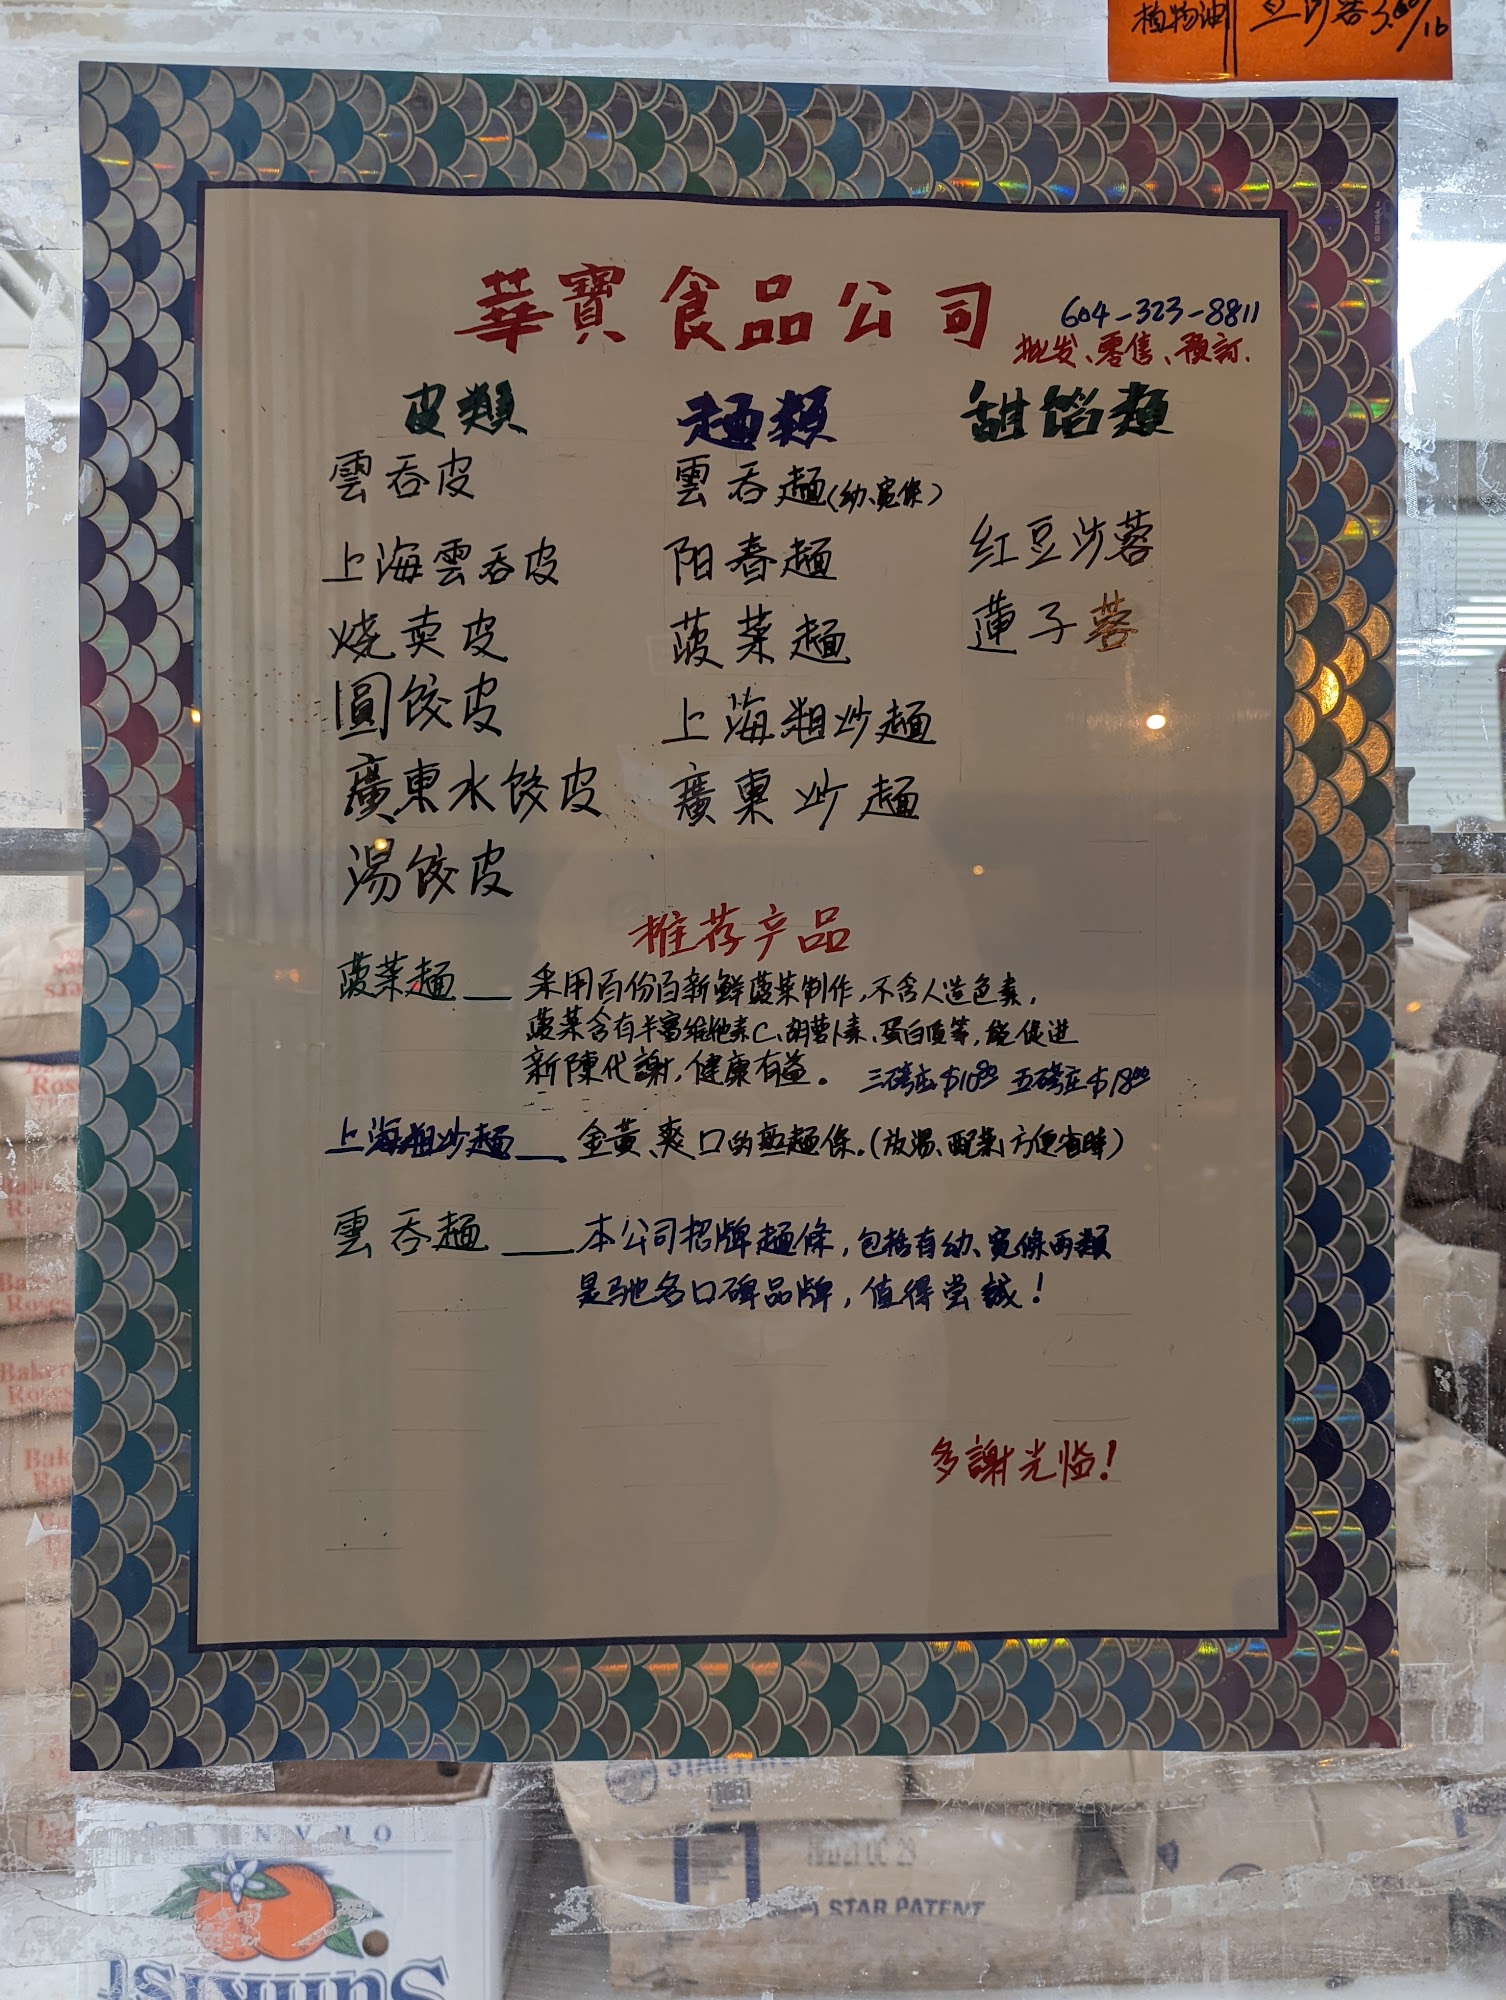 植物油
華寶食品公司
604-323-8811
批发、零售、预訂.
皮類
麺類
甜馅類
雲吞皮
雲吞麺(幼、寬條)
上海雲吞皮
阳春麺
红豆沙蓉
烧卖皮
菠菜麺
蓮子蓉
圓饺皮
上海粗炒麺
廣東水饺皮
廣東炒麺
湯饺皮
推荐产品
菠菜麺 — 采用百份百新鲜菠菜制作,不含人造色素,
菠菜含有丰富维他素C、胡萝卜素、蛋白质等,能促进
新陳代謝,健康有益。 三磅庄$10.80 五磅庄$18.00
上海粗炒麺 — 金黃、爽口的熟麺條。(放湯、配菜,方便省時)
雲吞麺 — 本公司招牌麺條,包括有幼、寬條两類
是驰名口碑品牌,值得尝試!
多謝光临!
Bakers
Roses
Bakers
Roses
STAR PATENT
STAR PATENT
Sunkist